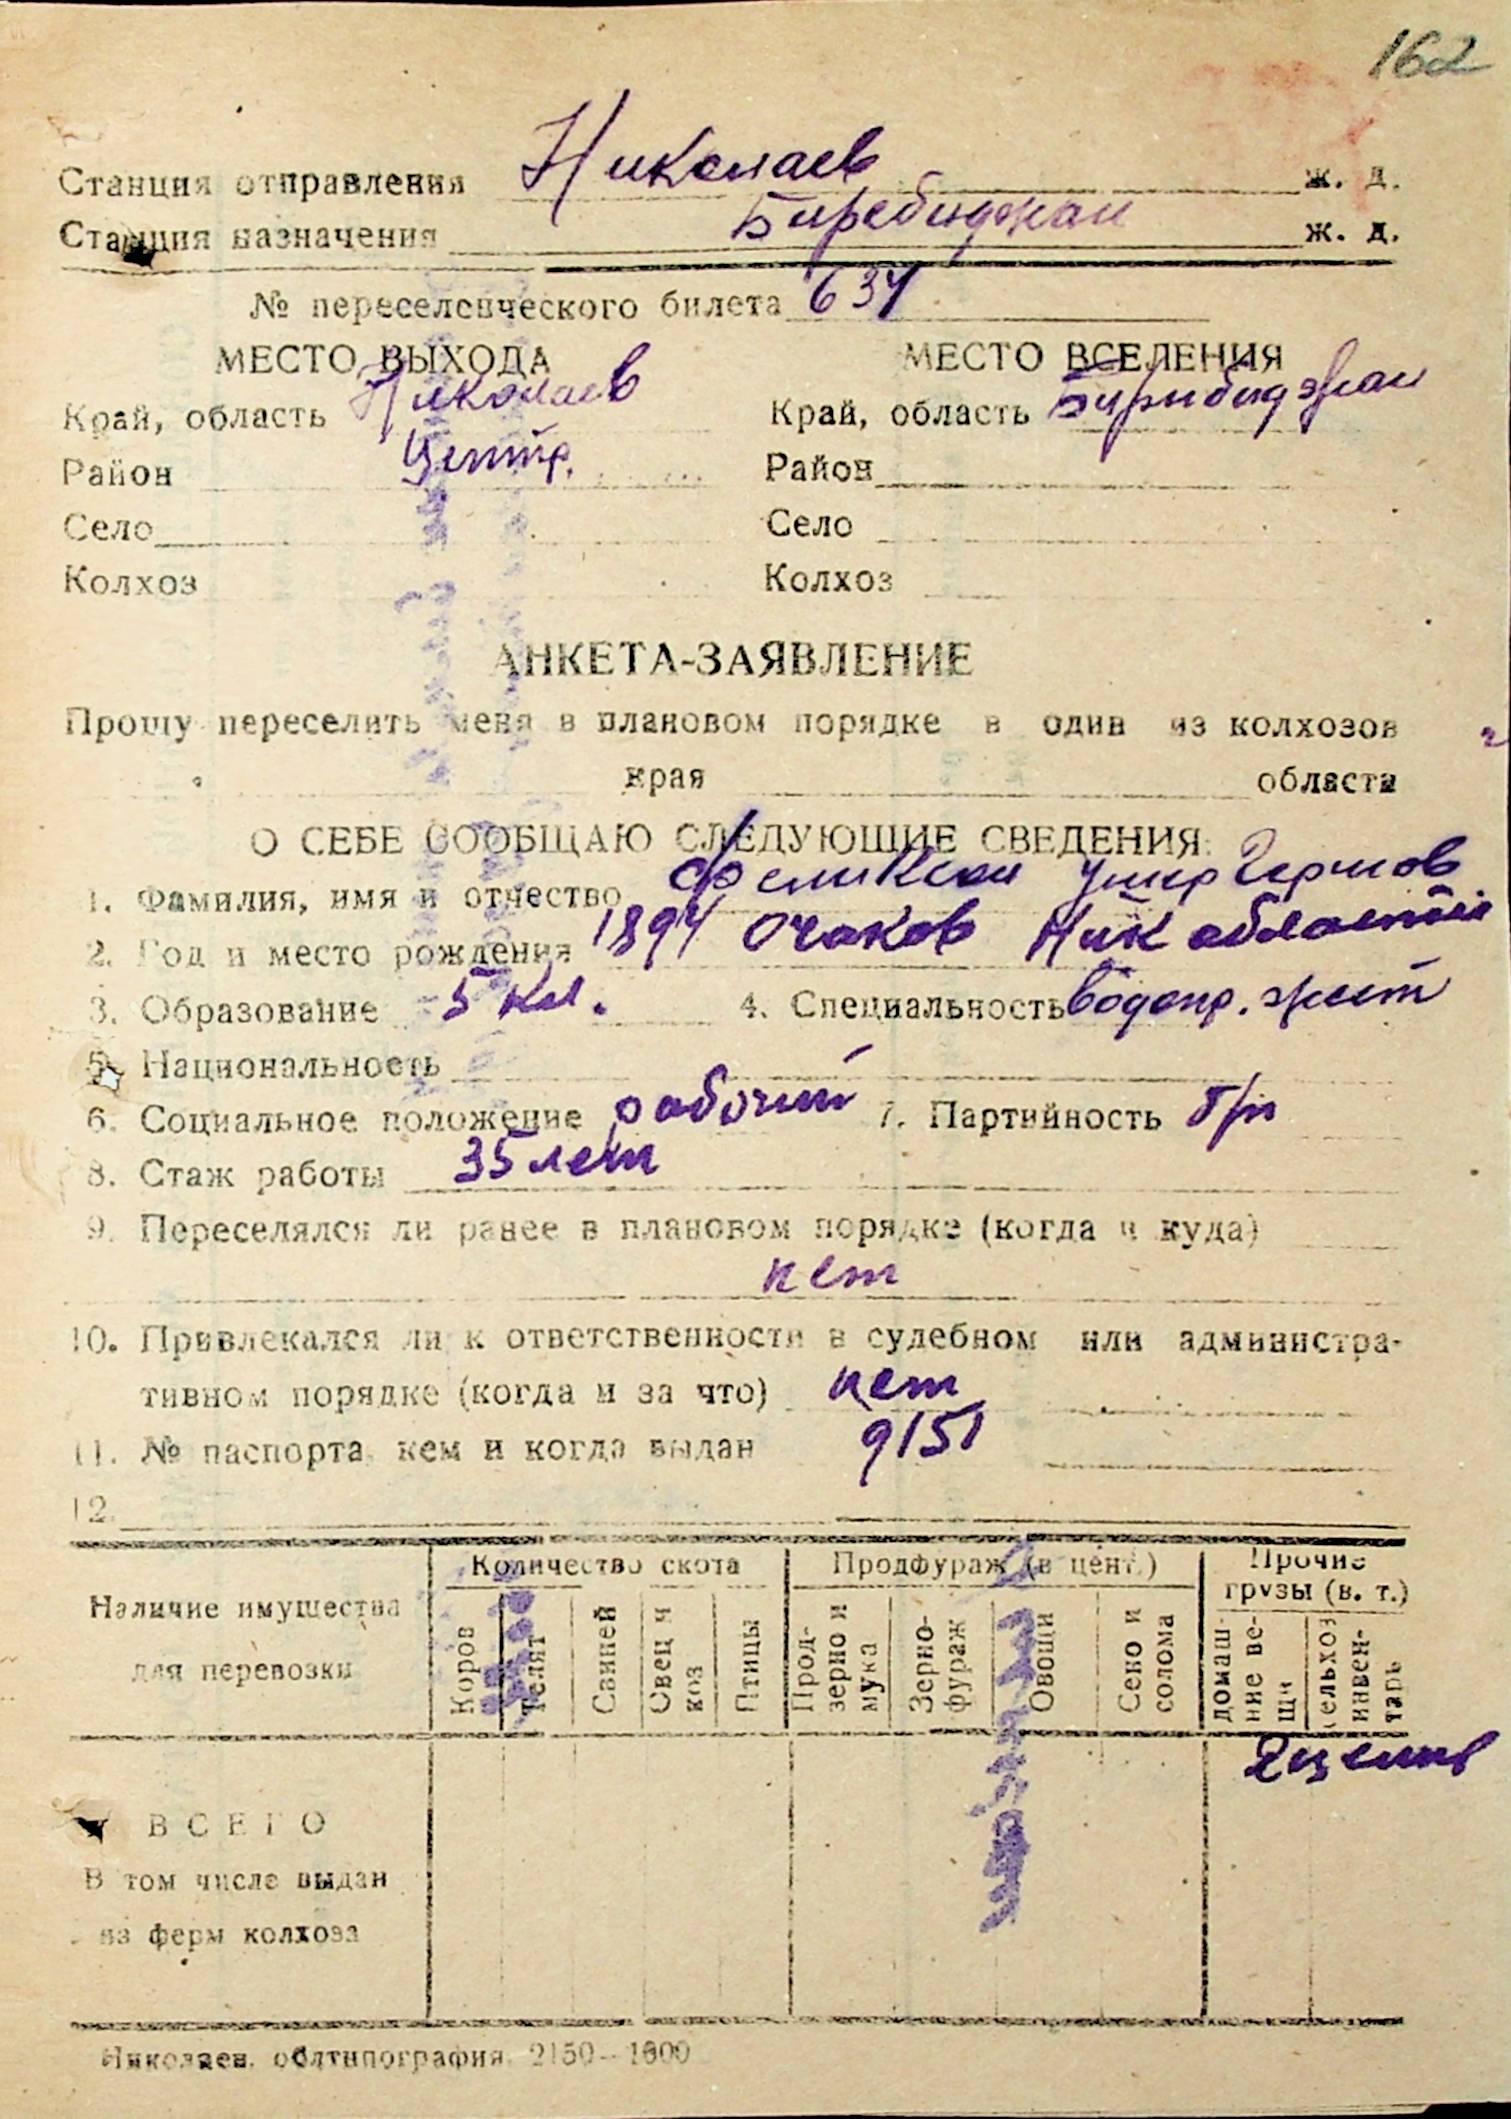 162
Станция отправления Николаев ж. д.
Станция назначения Биребиджан ж. д.
№ переселенческого билета 634
МЕСТО ВЫХОДА МЕСТО ВСЕЛЕНИЯ
Край, область Николаев Край, область Бирибиджан
Район Центр. Район
Село Село
Колхоз Колхоз
АНКЕТА-ЗАЯВЛЕНИЕ
Прошу переселить меня в плановом порядке в один из колхозов
края области
О СЕБЕ СООБЩАЮ СЛЕДУЮЩИЕ СВЕДЕНИЯ:
1. Фамилия, имя и отчество
2. Год и место рождения 1894 Очаков Ник области
3. Образование 5 кл. 4. Специальность водопр. жест
5. Национальность
6. Социальное положение рабочий 7. Партийность б/п
8. Стаж работы 35 лет
9. Переселялся ли ранее в плановом порядке (когда и куда)
нет
10. Привлекался ли к ответственности в судебном или администра-
тивном порядке (когда и за что) нет
11. № паспорта, кем и когда выдан 9151
12.
Наличие имущества для перевозки
Количество скота
Продфураж (в цент.)
Прочие грузы (в. т.)
Коров
Телят
Свиней
Овец и коз
Птицы
Прод-зерно и мука
Зерно-фураж
Овощи
Сено и солома
домаш-ние ве-щи
сельхоз инвен-тарь
ВСЕГО
В том числе выдан
из ферм колхоза
Николаев. облтипография 2150—1600